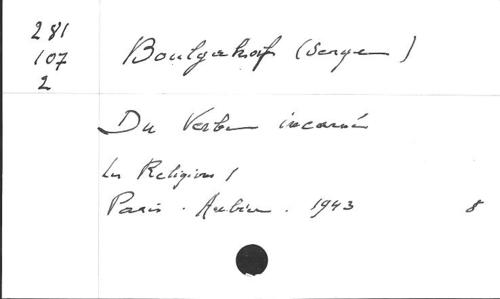 281
107
2
Boulgakof (Serge)
Du Verbe incarné
Les Religions 1
Paris . Aubier . 1943 8